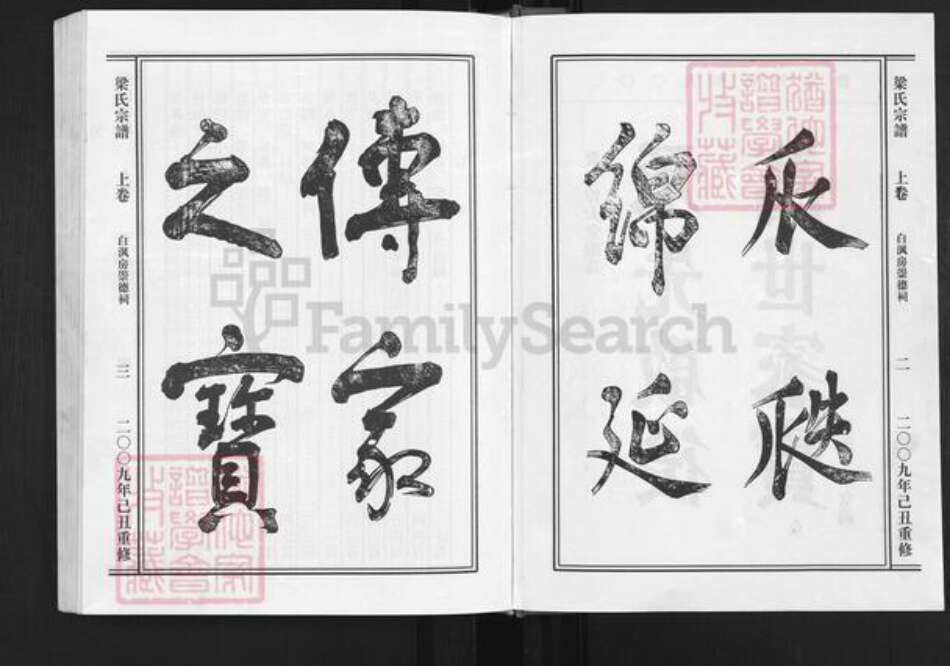 梁氏宗譜 上卷 白渢房崇德祠 二 二〇〇九年己丑重修
瓜瓞
綿延
傳家
之寶
梁氏宗譜 上卷 白渢房崇德祠 三 二〇〇九年己丑重修
猶他家
譜學會
收藏
猶他家
譜學會
收藏
FamilySearch